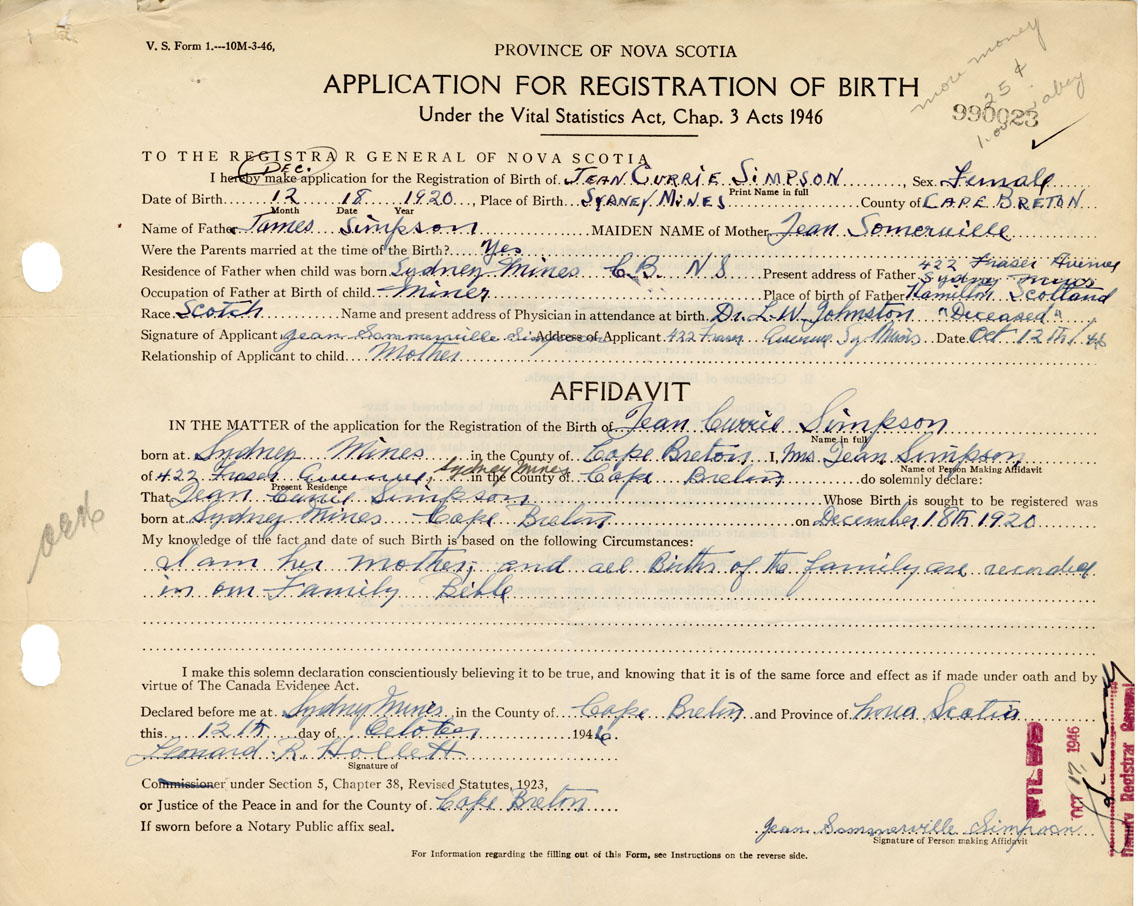 V. S. Form 1.---10M-3-46,
PROVINCE OF NOVA SCOTIA
more money
APPLICATION FOR REGISTRATION OF BIRTH
25 ¢
990023
Under the Vital Statistics Act, Chap. 3 Acts 1946
1.00
TO THE REGISTRAR GENERAL OF NOVA SCOTIA
DEC.
I hereby make application for the Registration of Birth of JEAN CURRIE SIMPSON, Sex Female
Print Name in full
Date of Birth 12 18 1920, Place of Birth SYDNEY MINES County of CAPE BRETON
Month Date Year
Name of Father James Simpson MAIDEN NAME of Mother Jean Somerville
Were the Parents married at the time of the Birth? Yes
422 Fraser Avenue
Residence of Father when child was born Sydney Mines C.B. N S Present address of Father Sydney Mines
Occupation of Father at Birth of child Miner Place of birth of Father Hamilton Scotland
Race Scotch Name and present address of Physician in attendance at birth Dr. L. W. Johnston "Deceased"
Signature of Applicant Jean Sommerville Simpson Address of Applicant 422 Fraser Avenue Sy Mines Date Oct 12th/46
Relationship of Applicant to child Mother
AFFIDAVIT
IN THE MATTER of the application for the Registration of the Birth of Jean Currie Simpson
Name in full
born at Sydney Mines in the County of Cape Breton I, Mrs Jean Simpson
Name of Person Making Affidavit
of 422 Fraser Avenue, Sydney Mines in the County of Cape Breton do solemnly declare:
Present Residence
That Jean Currie Simpson Whose Birth is sought to be registered was
born at Sydney Mines Cape Breton on December 18th 1920
My knowledge of the fact and date of such Birth is based on the following Circumstances:
I am her mother, and all Births of the family are recorded
in our Family Bible
I make this solemn declaration conscientiously believing it to be true, and knowing that it is of the same force and effect as if made under oath and by
virtue of The Canada Evidence Act.
Declared before me at Sydney Mines in the County of Cape Breton and Province of Nova Scotia
this 12th day of October 1946
Leonard R. Hollett
Signature of
Commissioner under Section 5, Chapter 38, Revised Statutes, 1923,
or Justice of the Peace in and for the County of Cape Breton
If sworn before a Notary Public affix seal.
Jean Sommerville Simpson
Signature of Person making Affidavit
For Information regarding the filling out of this Form, see Instructions on the reverse side.
FILED
OCT 17, 1946
Deputy Registrar General